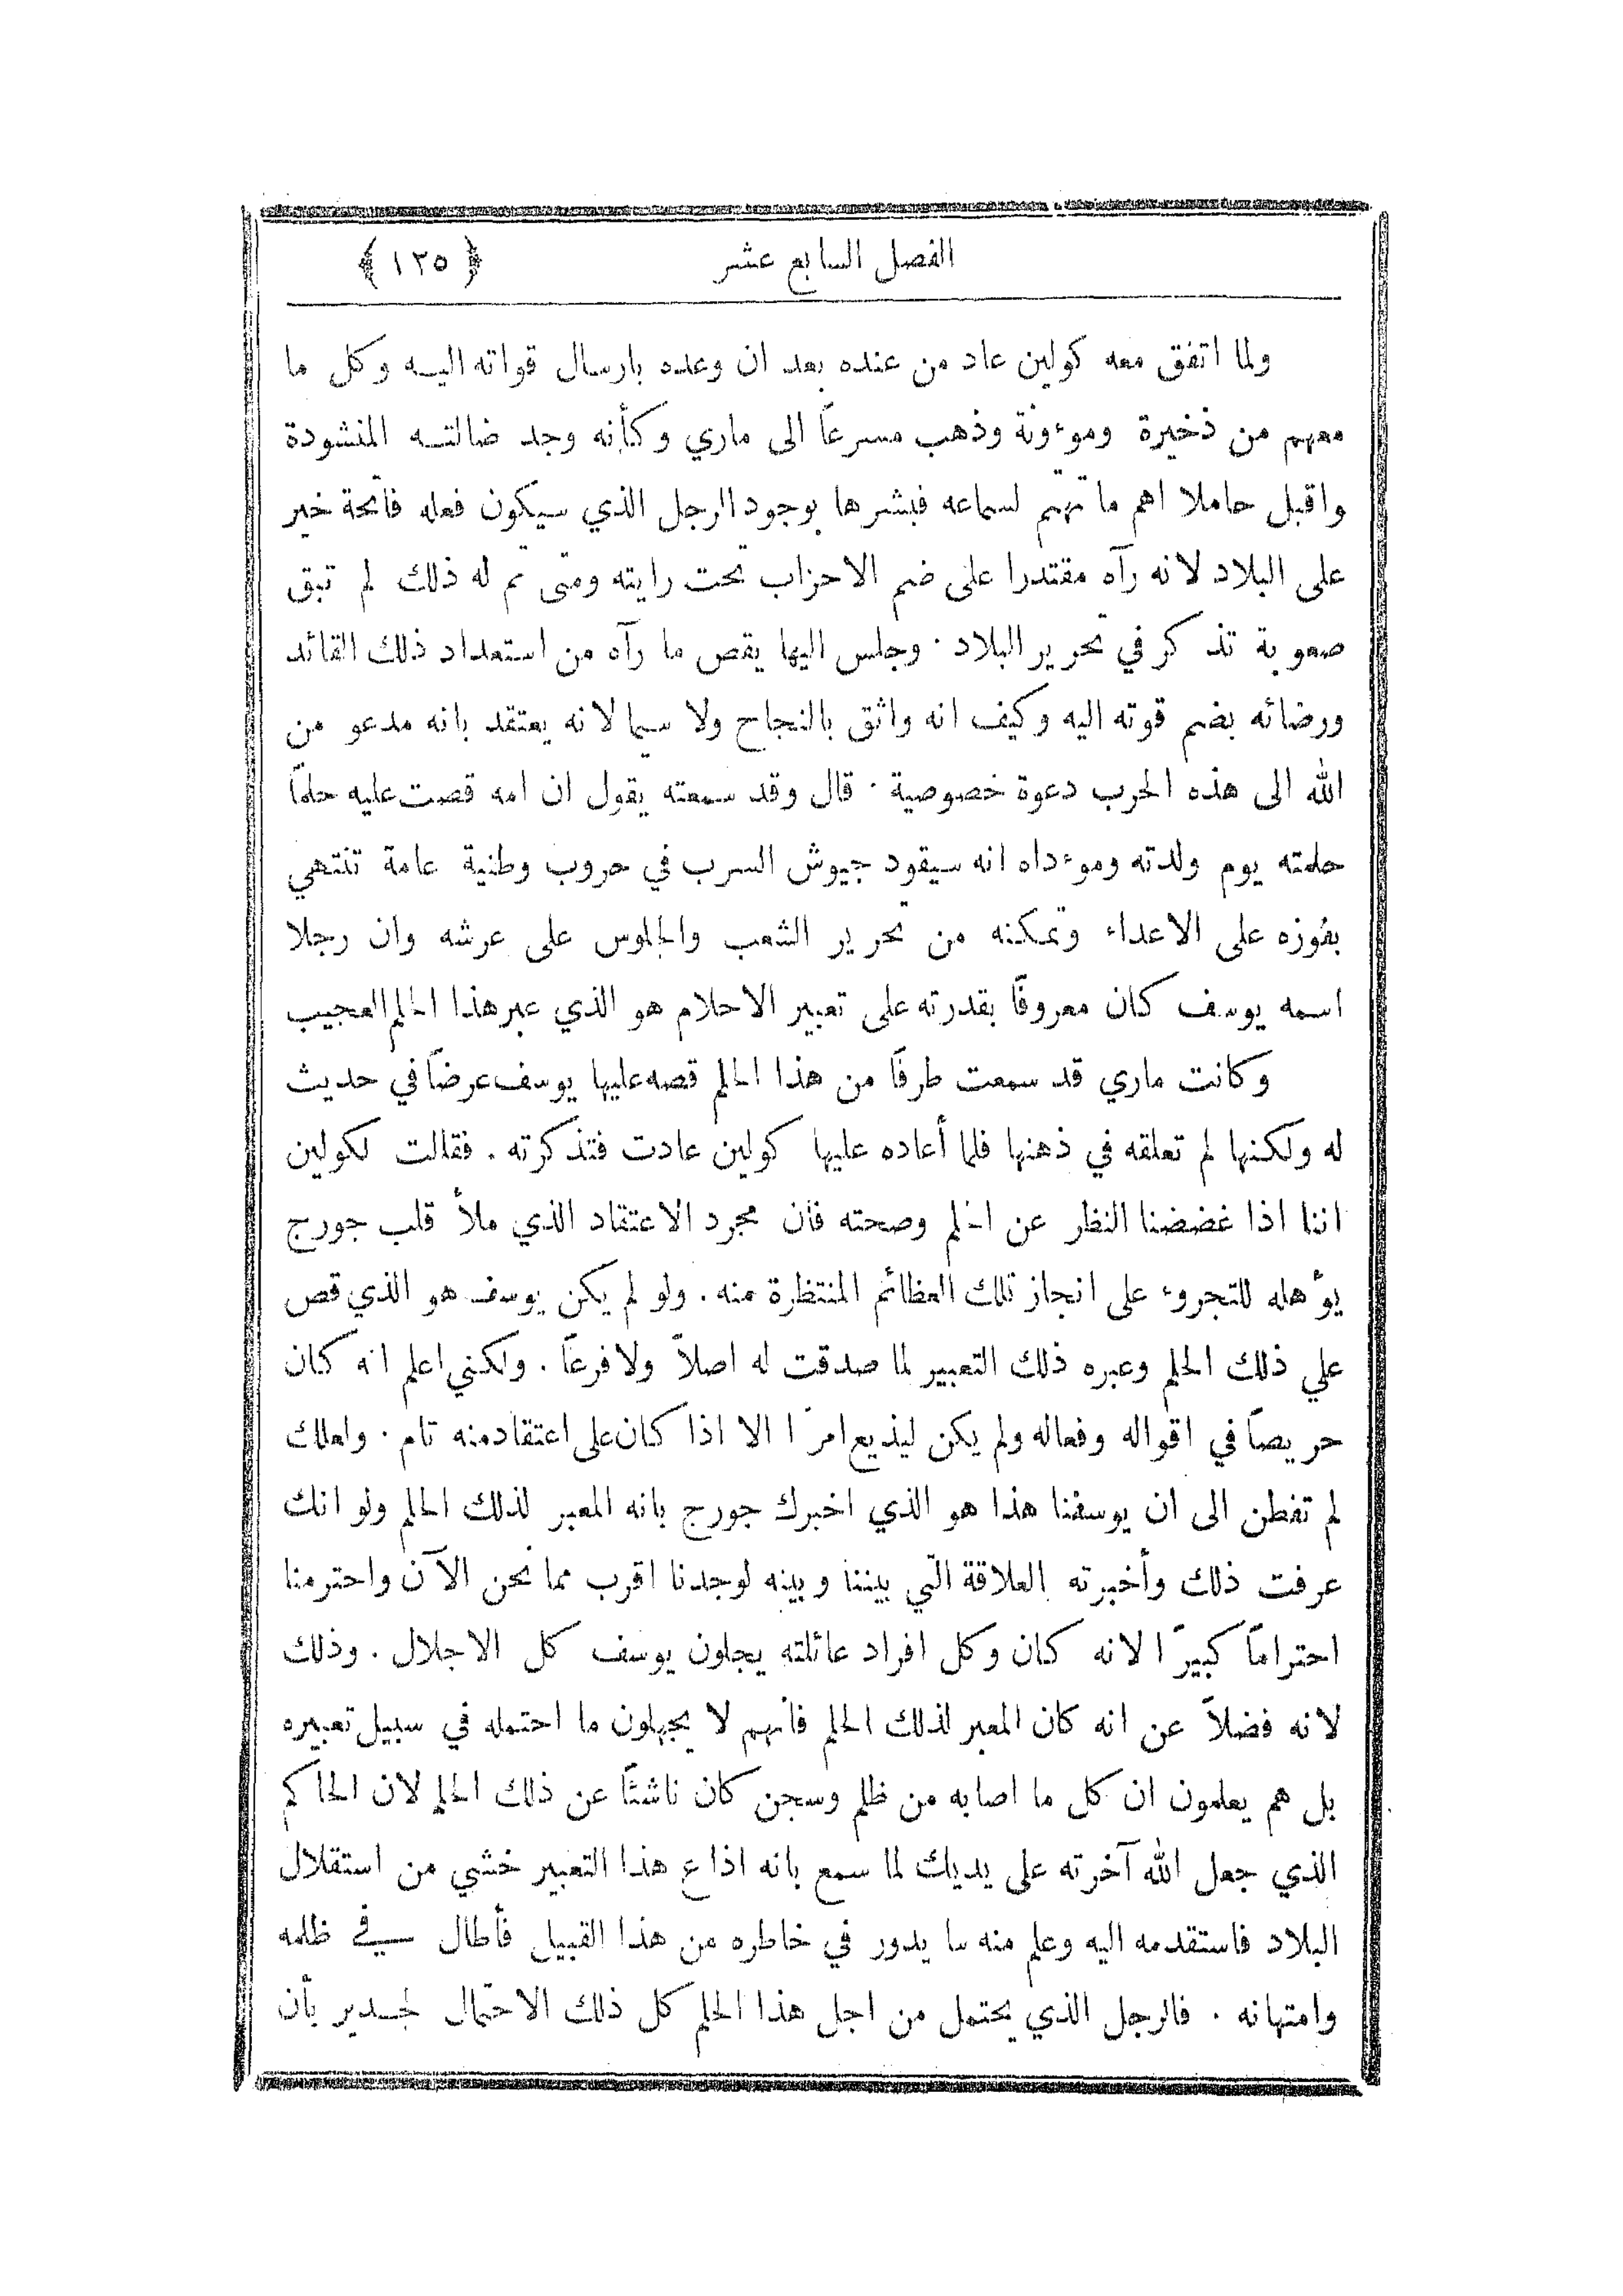 الفصل السابع عشر ﴿ ١٢٥ ﴾
ولما اتفق معه كولين عاد من عنده بعد ان وعده بارسال قواته اليه وكل ما
معهم من ذخيرة وموءونة وذهب مسرعاً الى ماري وكأنه وجد ضالته المنشودة
واقبل حاملا اهم ما تهتم لسماعه فبشرها بوجود الرجل الذي سيكون فعله فاتحة خير
على البلاد لانه رآه مقتدرا على ضم الاحزاب تحت رايته ومتى تم له ذلك لم تبق
صعوبة تذكر في تحرير البلاد . وجلس اليها يقص ما رآه من استعداد ذلك القائد
ورضائه بضم قوته اليه وكيف انه واثق بالنجاح ولا سيما لانه يعتقد بانه مدعو من
الله الى هذه الحرب دعوة خصوصية . قال وقد سمعته يقول ان امه قصت عليه حلماً
حلمته يوم ولدته وموءداه انه سيقود جيوش السرب في حروب وطنية عامة تنتهي
بفوزه على الاعداء وتمكنه من تحرير الشعب والجلوس على عرشه وان رجلا
اسمه يوسف كان معروفاً بقدرته على تعبير الاحلام هو الذي عبر هذا الحلم العجيب
وكانت ماري قد سمعت طرفاً من هذا الحلم قصه عليها يوسف عرضاً في حديث
له ولكنها لم تعلقه في ذهنها فلما أعاده عليها كولين عادت فتذكرته . فقالت لكولين
اننا اذا غضضنا النظر عن الحلم وصحته فان مجرد الاعتقاد الذي ملأ قلب جورج
يوٴهله للتجروء على انجاز تلك العظائم المنتظرة منه . ولو لم يكن يوسف هو الذي قص
علي ذلك الحلم وعبره ذلك التعبير لما صدقت له اصلاً ولا فرعاً . ولكني اعلم انه كان
حريصاً في اقواله وفعاله ولم يكن ليذيع امرًا الا اذا كان على اعتقاد منه تام . ولعلك
لم تفطن الى ان يوسفنا هذا هو الذي اخبرك جورج بانه المعبر لذلك الحلم ولو انك
عرفت ذلك وأخبرته العلاقة التي بيننا وبينه لوجدنا اقرب مما نحن الآن واحترمنا
احتراماً كبيرًا لانه كان وكل افراد عائلته يجلون يوسف كل الاجلال . وذلك
لانه فضلاً عن انه كان المعبر لذلك الحلم فانهم لا يجهلون ما احتمله في سبيل تعبيره
بل هم يعلمون ان كل ما اصابه من ظلم وسجن كان ناشئاً عن ذلك الحلم لان الحاكم
الذي جعل الله آخرته على يديك لما سمع بانه اذاع هذا التعبير خشي من استقلال
البلاد فاستقدمه اليه وعلم منه ما يدور في خاطره من هذا القبيل فأطال في ظلمه
وامتهانه . فالرجل الذي يحتمل من اجل هذا الحلم كل ذلك الاحتمال لجدير بأن